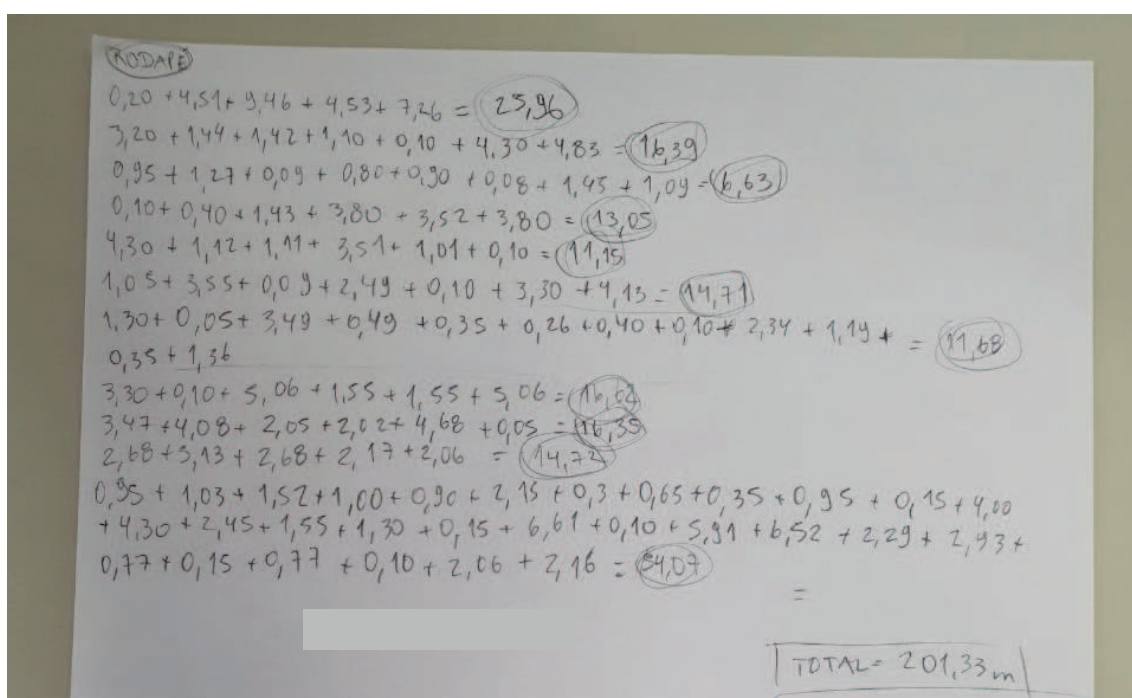 RODAPÉ
0,20 + 4,51 + 9,46 + 4,53 + 7,26 = 25,96
3,20 + 1,44 + 1,42 + 1,10 + 0,10 + 4,30 + 4,83 = 16,39
0,95 + 1,27 + 0,09 + 0,80 + 0,90 + 0,08 + 1,45 + 1,09 = 6,63
0,10 + 0,40 + 1,43 + 3,80 + 3,52 + 3,80 = 13,05
4,30 + 1,12 + 1,11 + 3,51 + 1,01 + 0,10 = 11,15
1,05 + 3,55 + 0,09 + 2,49 + 0,10 + 3,30 + 4,13 = 14,71
1,30 + 0,05 + 3,49 + 0,49 + 0,35 + 0,26 + 0,40 + 0,10 + 2,34 + 1,19 + = 11,68
0,35 + 1,36
3,30 + 0,10 + 5,06 + 1,55 + 1,55 + 5,06 = 16,62
3,47 + 4,08 + 2,05 + 2,02 + 4,68 + 0,05 = 16,35
2,68 + 5,13 + 2,68 + 2,17 + 2,06 = 14,72
0,95 + 1,03 + 1,52 + 1,00 + 0,90 + 2,15 + 0,3 + 0,65 + 0,35 + 0,95 + 0,15 + 4,00
+ 4,30 + 2,45 + 1,55 + 1,30 + 0,15 + 6,61 + 0,10 + 5,91 + 6,52 + 2,29 + 2,93 +
0,77 + 0,15 + 0,77 + 0,10 + 2,06 + 2,16 = 54,07
=
TOTAL = 201,33 m